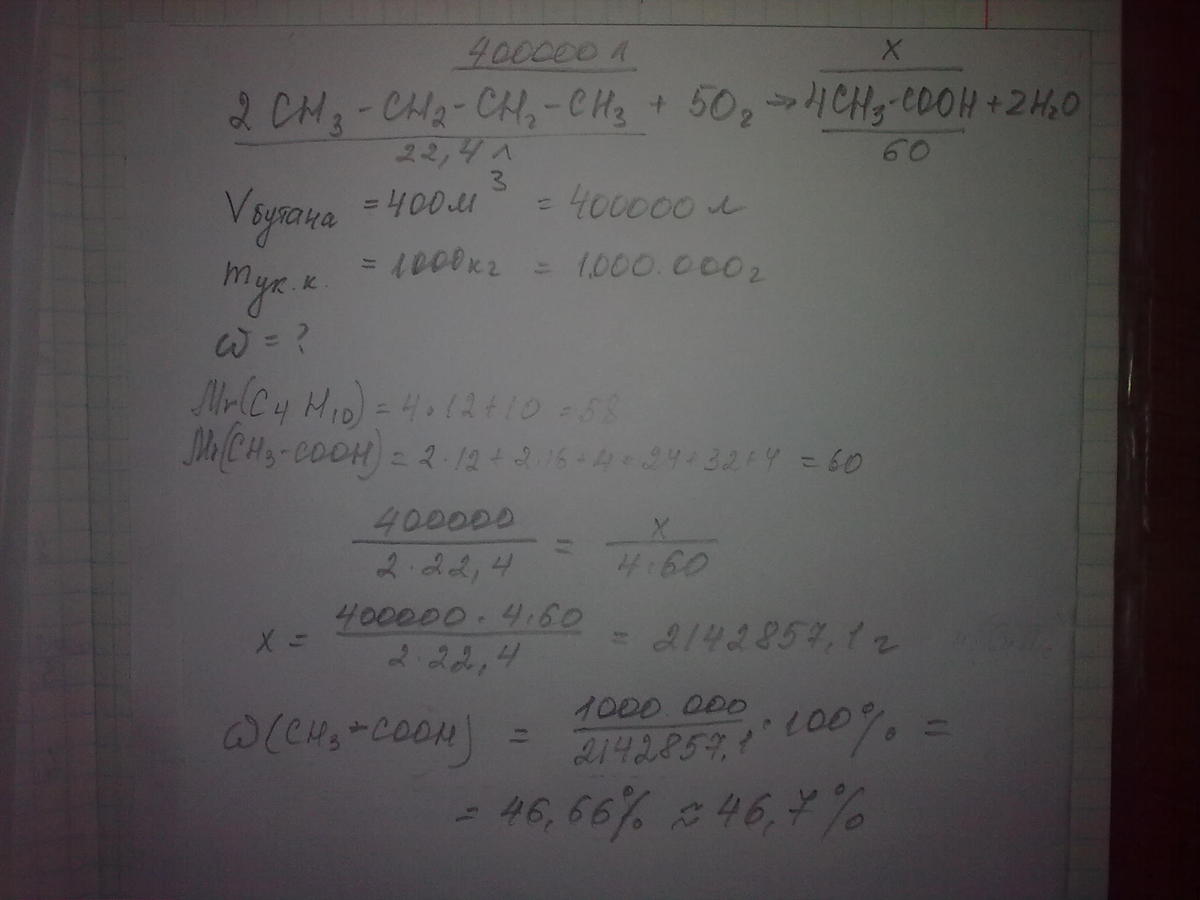 400000 л x
2 CH₃-CH₂-CH₂-CH₃ + 5O₂ → 4CH₃-COOH + 2H₂O
22,4 л 60
Vбутана = 400м³ = 400000 л
mук.к. = 1000кг = 1.000.000г
ω = ?
Mr(C₄H₁₀) = 4·12+10 = 58
Mr(CH₃-COOH) = 2·12+2·16+4=24+32+4 = 60
400000 / 2·22,4 = x / 4·60
x = 400000·4·60 / 2·22,4 = 2142857,1 г
ω(CH₃-COOH) = 1000.000 / 2142857,1 · 100% =
= 46,66% ≈ 46,7%